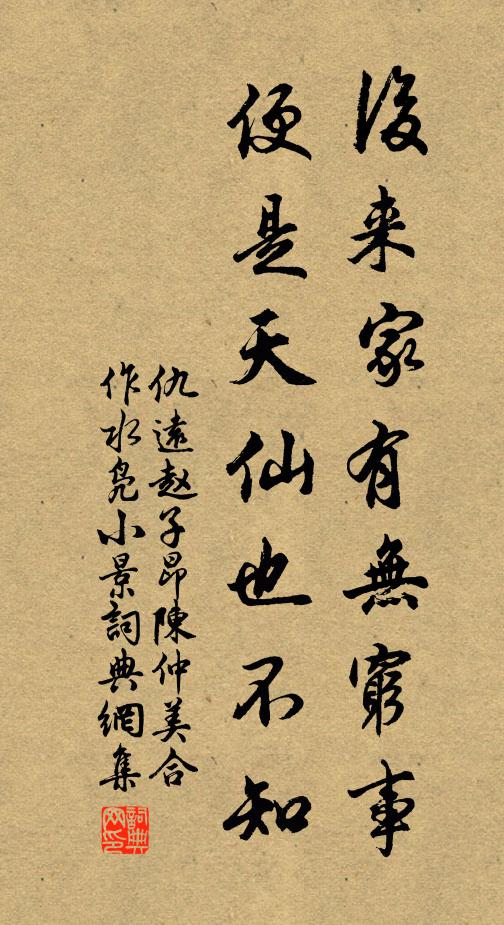 後来家有無窮事
便是天仙也不知
仇遠赵子昂陳仲美合
作水凫小景詞典網集
詞典网印